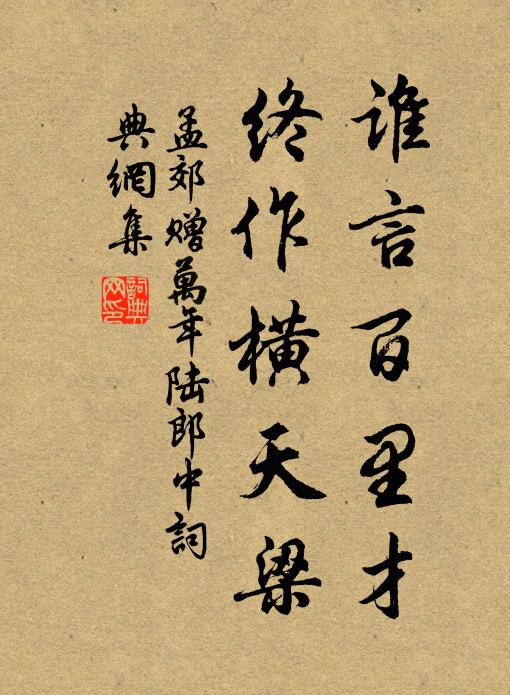 谁言百里才
终作横天梁
孟郊赠萬年陆郎中詞
典網集
詞典
网印